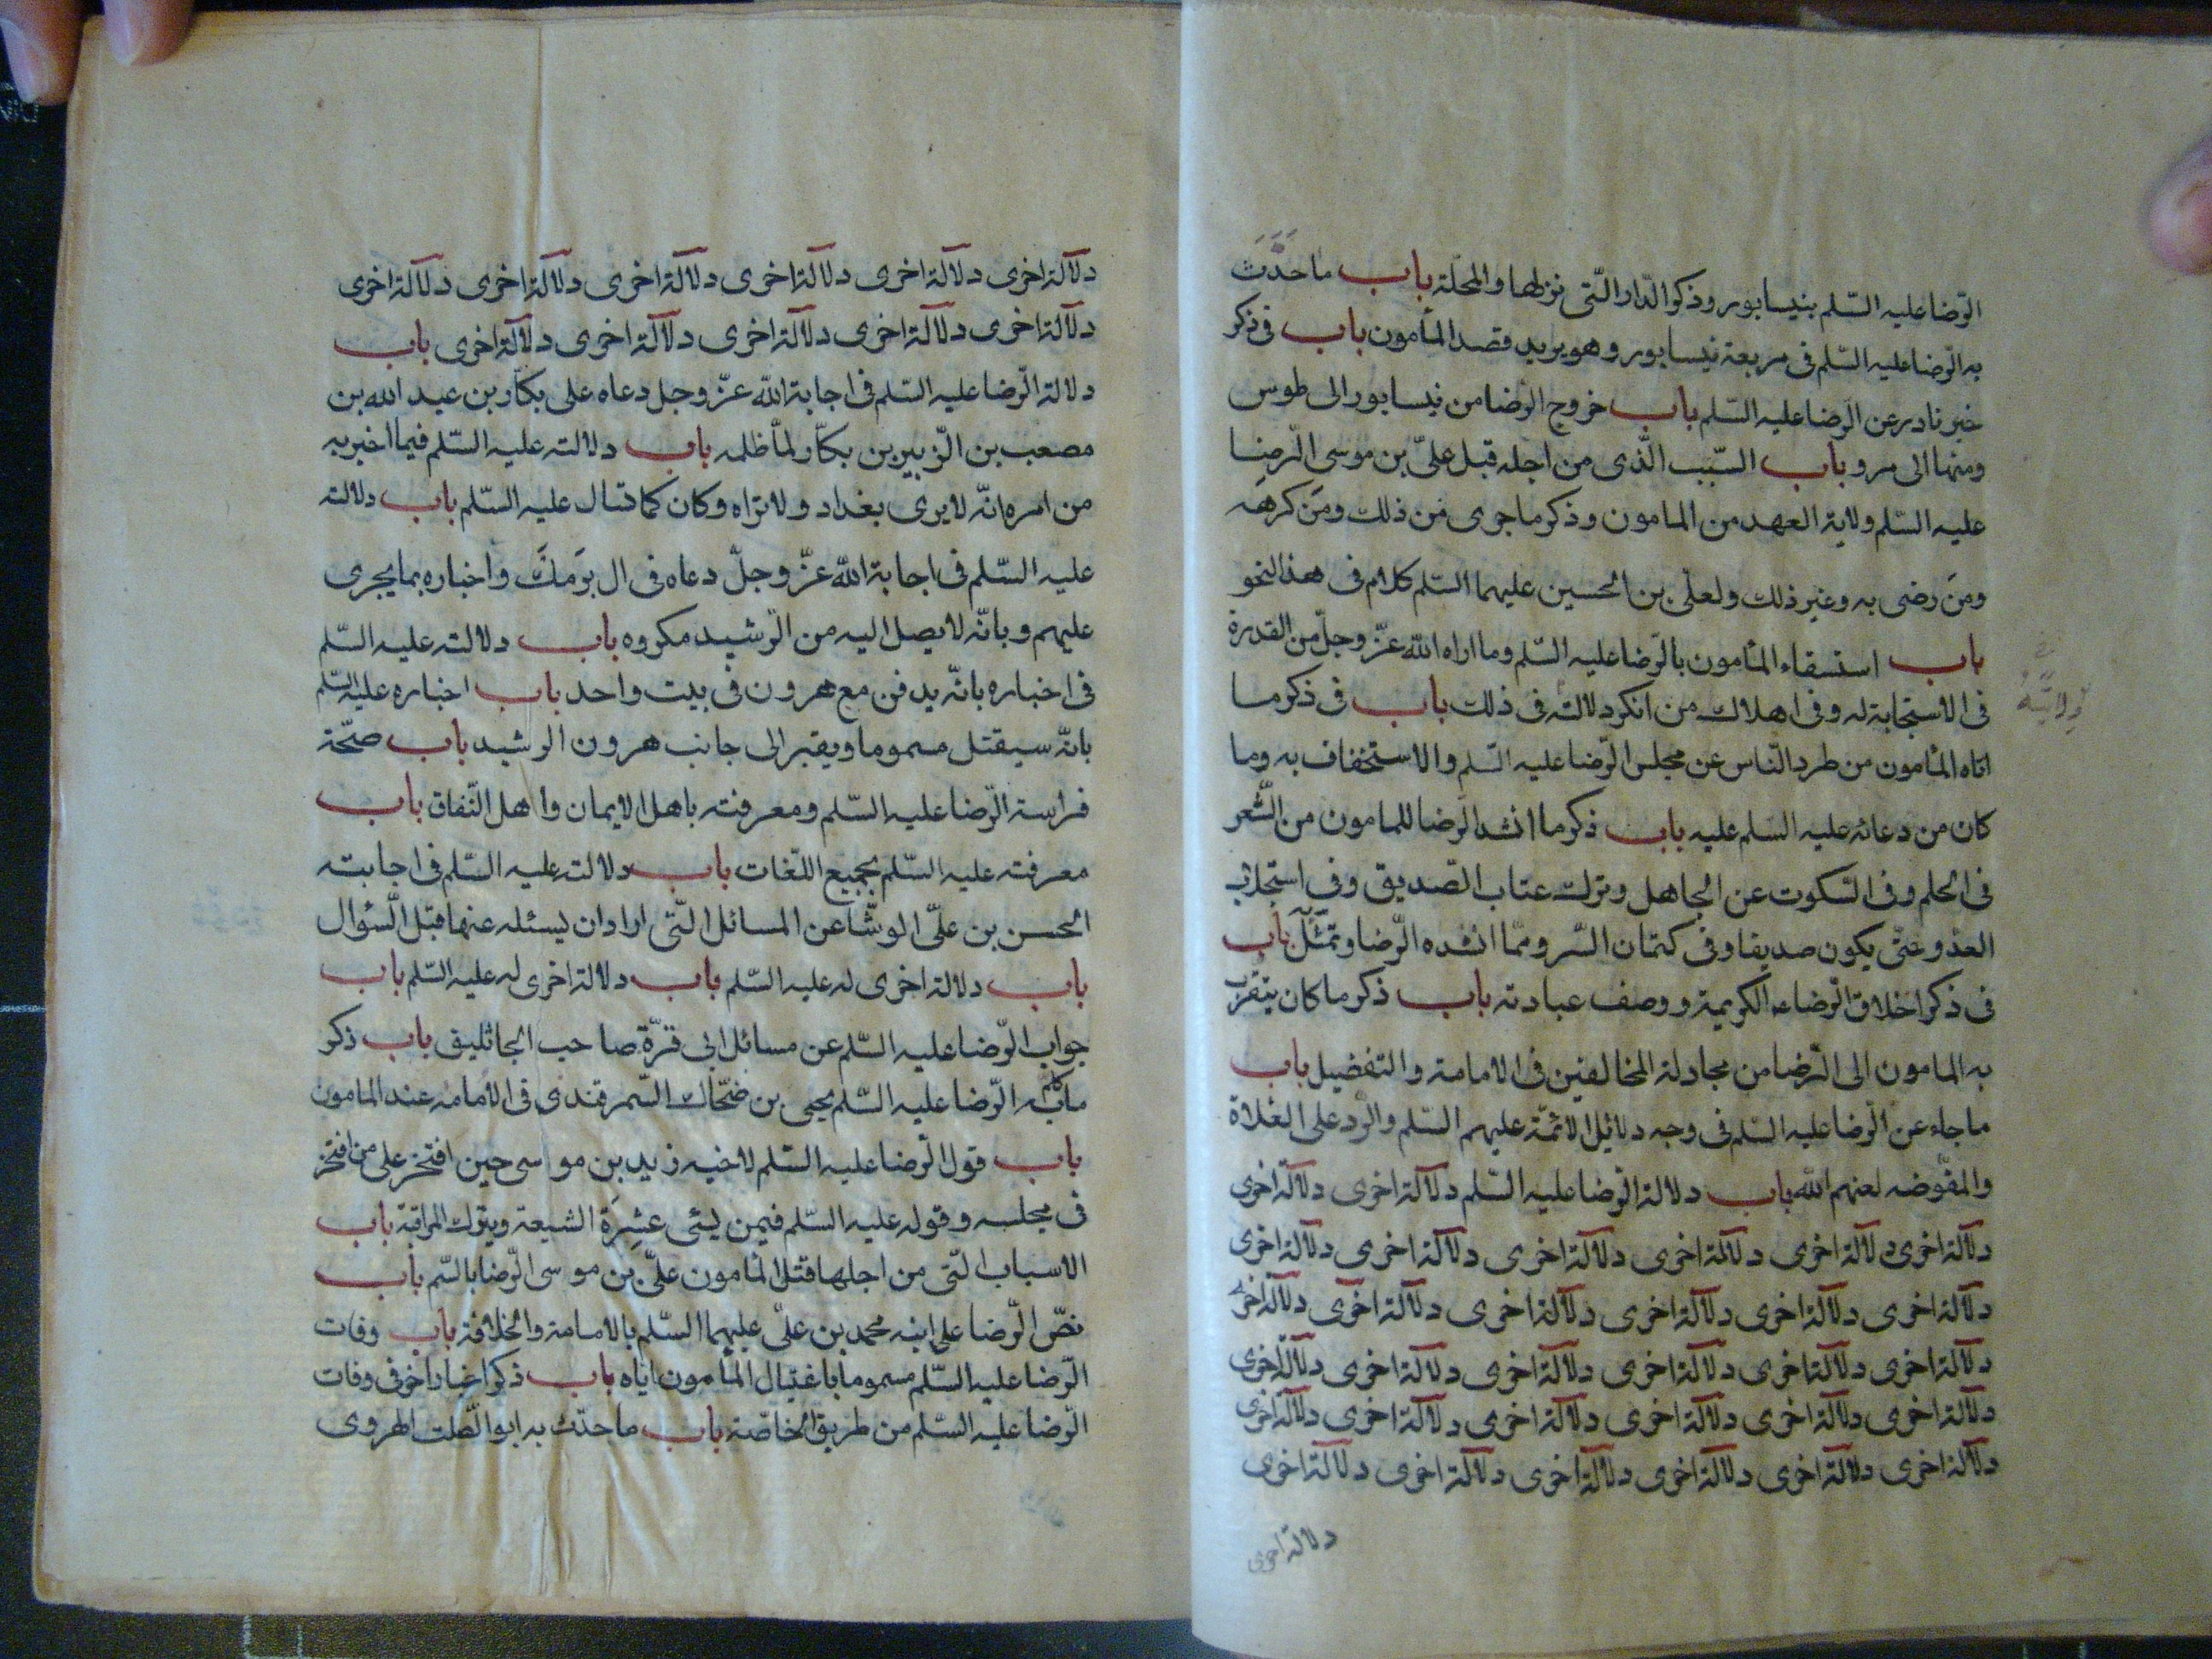 الرّضا عليه السّلم بنيسابور وذكر الدّار الّتى نزلها والمحلّة باب ما حدّث
به الرّضا عليه السّلم فى مربعة نيسابور وهو يريد قصد المأمون باب فى ذكر
خبر نادر عن الرّضا عليه السّلم باب خروج الرّضا من نيسابور الى طوس
ومنها الى مرو باب السّبب الّذى من اجله قبل علىّ بن موسى الرّضا
عليه السّلم ولاية العهد من المامون وذكر ما جرى من ذلك ومَن كرهه
ومَن رضى به وغير ذلك ولعلى بن الحسين عليهما السّلم كلام فى هذا النحو
باب استسقاء المأمون بالرّضا عليه السّلم وما اراه الله عزّ وجلّ من القدرة
فى الاستجابة له وفى اهلاك من انكر دلالته فى ذلك باب فى ذكر ما
اتاه المأمون من طرد النّاس عن مجلس الرّضا عليه السّلم والاستخفاف به وما
كان من دعائه عليه السّلم عليه باب ذكر ما انشد الرّضا للمامون من الشّعر
فى الحلم وفى السّكوت عن الجاهل وترك عتاب الصّديق وفى استجلاب
العدو حتّى يكون صديقا وفى كتمان السّر وممّا انشده الرّضا وتمثّل باب
فى ذكر اخلاق الرّضا عه الكريمة ووصف عبادته باب ذكر ما كان يتقرّب
به المامون الى الرّضا من مجادلة المخالفين فى الامامة والتفضيل باب
ما جاء عن الرّضا عليه السّلم فى وجه دلائل الائمّة عليهم السّلم والرّد على الغلاة
والمفوّضه لعنهم الله باب دلالة الرّضا عليه السّلم دلالة اخرى دلالة اخرى
دلالة اخرى دلالة اخرى دلالة اخرى دلالة اخرى دلالة اخرى دلالة اخرى
دلالة اخرى دلالة اخرى دلالة اخرى دلالة اخرى دلالة اخرى دلالة اخرى
دلالة اخرى دلالة اخرى دلالة اخرى دلالة اخرى دلالة اخرى دلالة اخرى
دلالة اخرى دلالة اخرى دلالة اخرى دلالة اخرى دلالة اخرى دلالة اخرى
دلالة اخرى دلالة اخرى دلالة اخرى دلالة اخرى دلالة اخرى دلالة اخرى
دلالة اخرى
دلالة اخرى دلالة اخرى دلالة اخرى دلالة اخرى دلالة اخرى دلالة اخرى
دلالة اخرى دلالة اخرى دلالة اخرى دلالة اخرى دلالة اخرى باب
دلالة الرّضا عليه السّلم فى اجابة الله عزّ وجل دعاه على بكّار بن عبد الله بن
مصعب بن الزّبير بن بكّار لمّا ظلمه باب دلالته عليه السّلم فيما اخبر به
من امره انّه لا يرى بغداد ولا تراه وكان كما قال عليه السّلم باب دلالته
عليه السّلم فى اجابة الله عزّ وجلّ دعاه فى ال بَرمَك واخباره بما يجرى
عليهم وبانّه لا يصل اليه من الرّشيد مكروه باب دلالته عليه السّلم
فى اخباره بانّه يدفن مع هرون فى بيت واحد باب اخباره عليه السّلم
بانّه سيقتل مسموما ويقبر الى جانب هرون الرشيد باب صحّة
فراسة الرّضا عليه السّلم ومعرفته باهل الايمان واهل النّفاق باب
معرفته عليه السّلم بجميع اللّغات باب دلالته عليه السّلم فى اجابته
الحسن بن علىّ الوشّا عن المسائل الّتى اراد ان يسئله عنها قبل السّئوال
باب دلالة اخرى له عليه السّلم باب دلالة اخرى له عليه السّلم باب
جواب الرّضا عليه السّلم عن مسائل ابى قرّة صاحب الجاثليق باب ذكر
ما كلّم به الرّضا عليه السّلم يحيى بن ضحّاك السّمرقندى فى الامامه عند المامون
باب قول الرّضا عليه السّلم لاخيه زيد بن موسى حين افتخر على من افتخر
فى مجلسه وقوله عليه السّلم فيمن يسئى عشرَة الشيعة ويترك المراقبة باب
الاسباب الّتى من اجلها قتل المأمون علىّ بن موسى الرّضا بالسّم باب
نصّ الرّضا على ابنه محمد بن علىّ عليهما السّلم بالامامة والخلافة باب وفات
الرّضا عليه السّلم مسموما باغتيال المأمون ايّاه باب ذكر اخبار اخر فى وفات
الرّضا عليه السّلم من طريق الخاصّة باب ما حدّث به ابو الصّلت الهروى